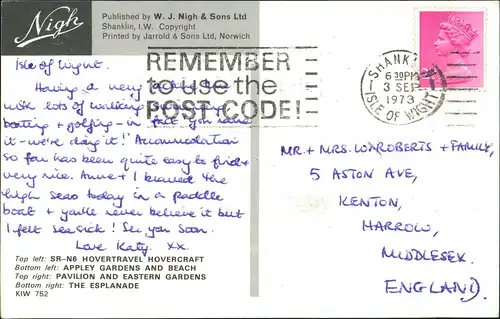 Nigh
Published by W. J. Nigh & Sons Ltd
Shanklin, I.W. Copyright
Printed by Jarrold & Sons Ltd, Norwich
REMEMBER
to use the
POST CODE!
SHANKLIN
6 30PM
3 SEP
1973
ISLE OF WIGHT
Isle of Wight.
Having a very
with lots of walking, swimming,
boating + golfing - in fact you name
it - we're doing it! Accommodation
so far has been quite easy to find +
very nice. Anne + I braved the
high seas today in a paddle
boat + you'll never believe it but
I felt sea sick! See you soon.
Love Katy. xx.
MR + MRS. ROBERTS + FAMILY,
5 ASTON AVE,
KENTON,
HARROW,
MIDDLESEX.
ENGLAND.
Top left: SR-N6 HOVERTRAVEL HOVERCRAFT
Bottom left: APPLEY GARDENS AND BEACH
Top right: PAVILION AND EASTERN GARDENS
Bottom right: THE ESPLANADE
KIW 752